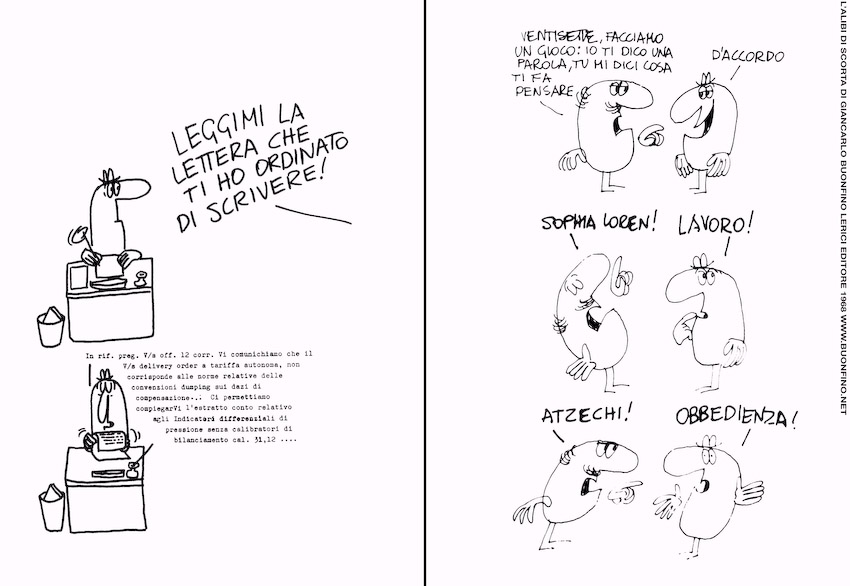 LEGGIMI LA
LETTERA CHE
TI HO ORDINATO
DI SCRIVERE!
In rif. preg. V/s off. 12 corr. Vi comunichiamo che il
V/s delivery order a tariffa autonoma, non
corrisponde alle norme relative delle
convenzioni dumping sui dazi di
compensazione... Ci permettiamo
compiegarVi l'estratto conto relativo
agli Indicatori differenziali di
pressione senza calibratori di
bilanciamento cal. 31,12 ....
VENTISETTE, FACCIAMO
UN GIOCO: IO TI DICO UNA
PAROLA, TU MI DICI COSA
TI FA
PENSARE
D'ACCORDO
SOPHIA LOREN!
LAVORO!
ATZECHI!
OBBEDIENZA!
L'ALIBI DI SCORTA DI GIANCARLO BUONFINO LERICI EDITORE 1968 WWW.BUONFINO.NET